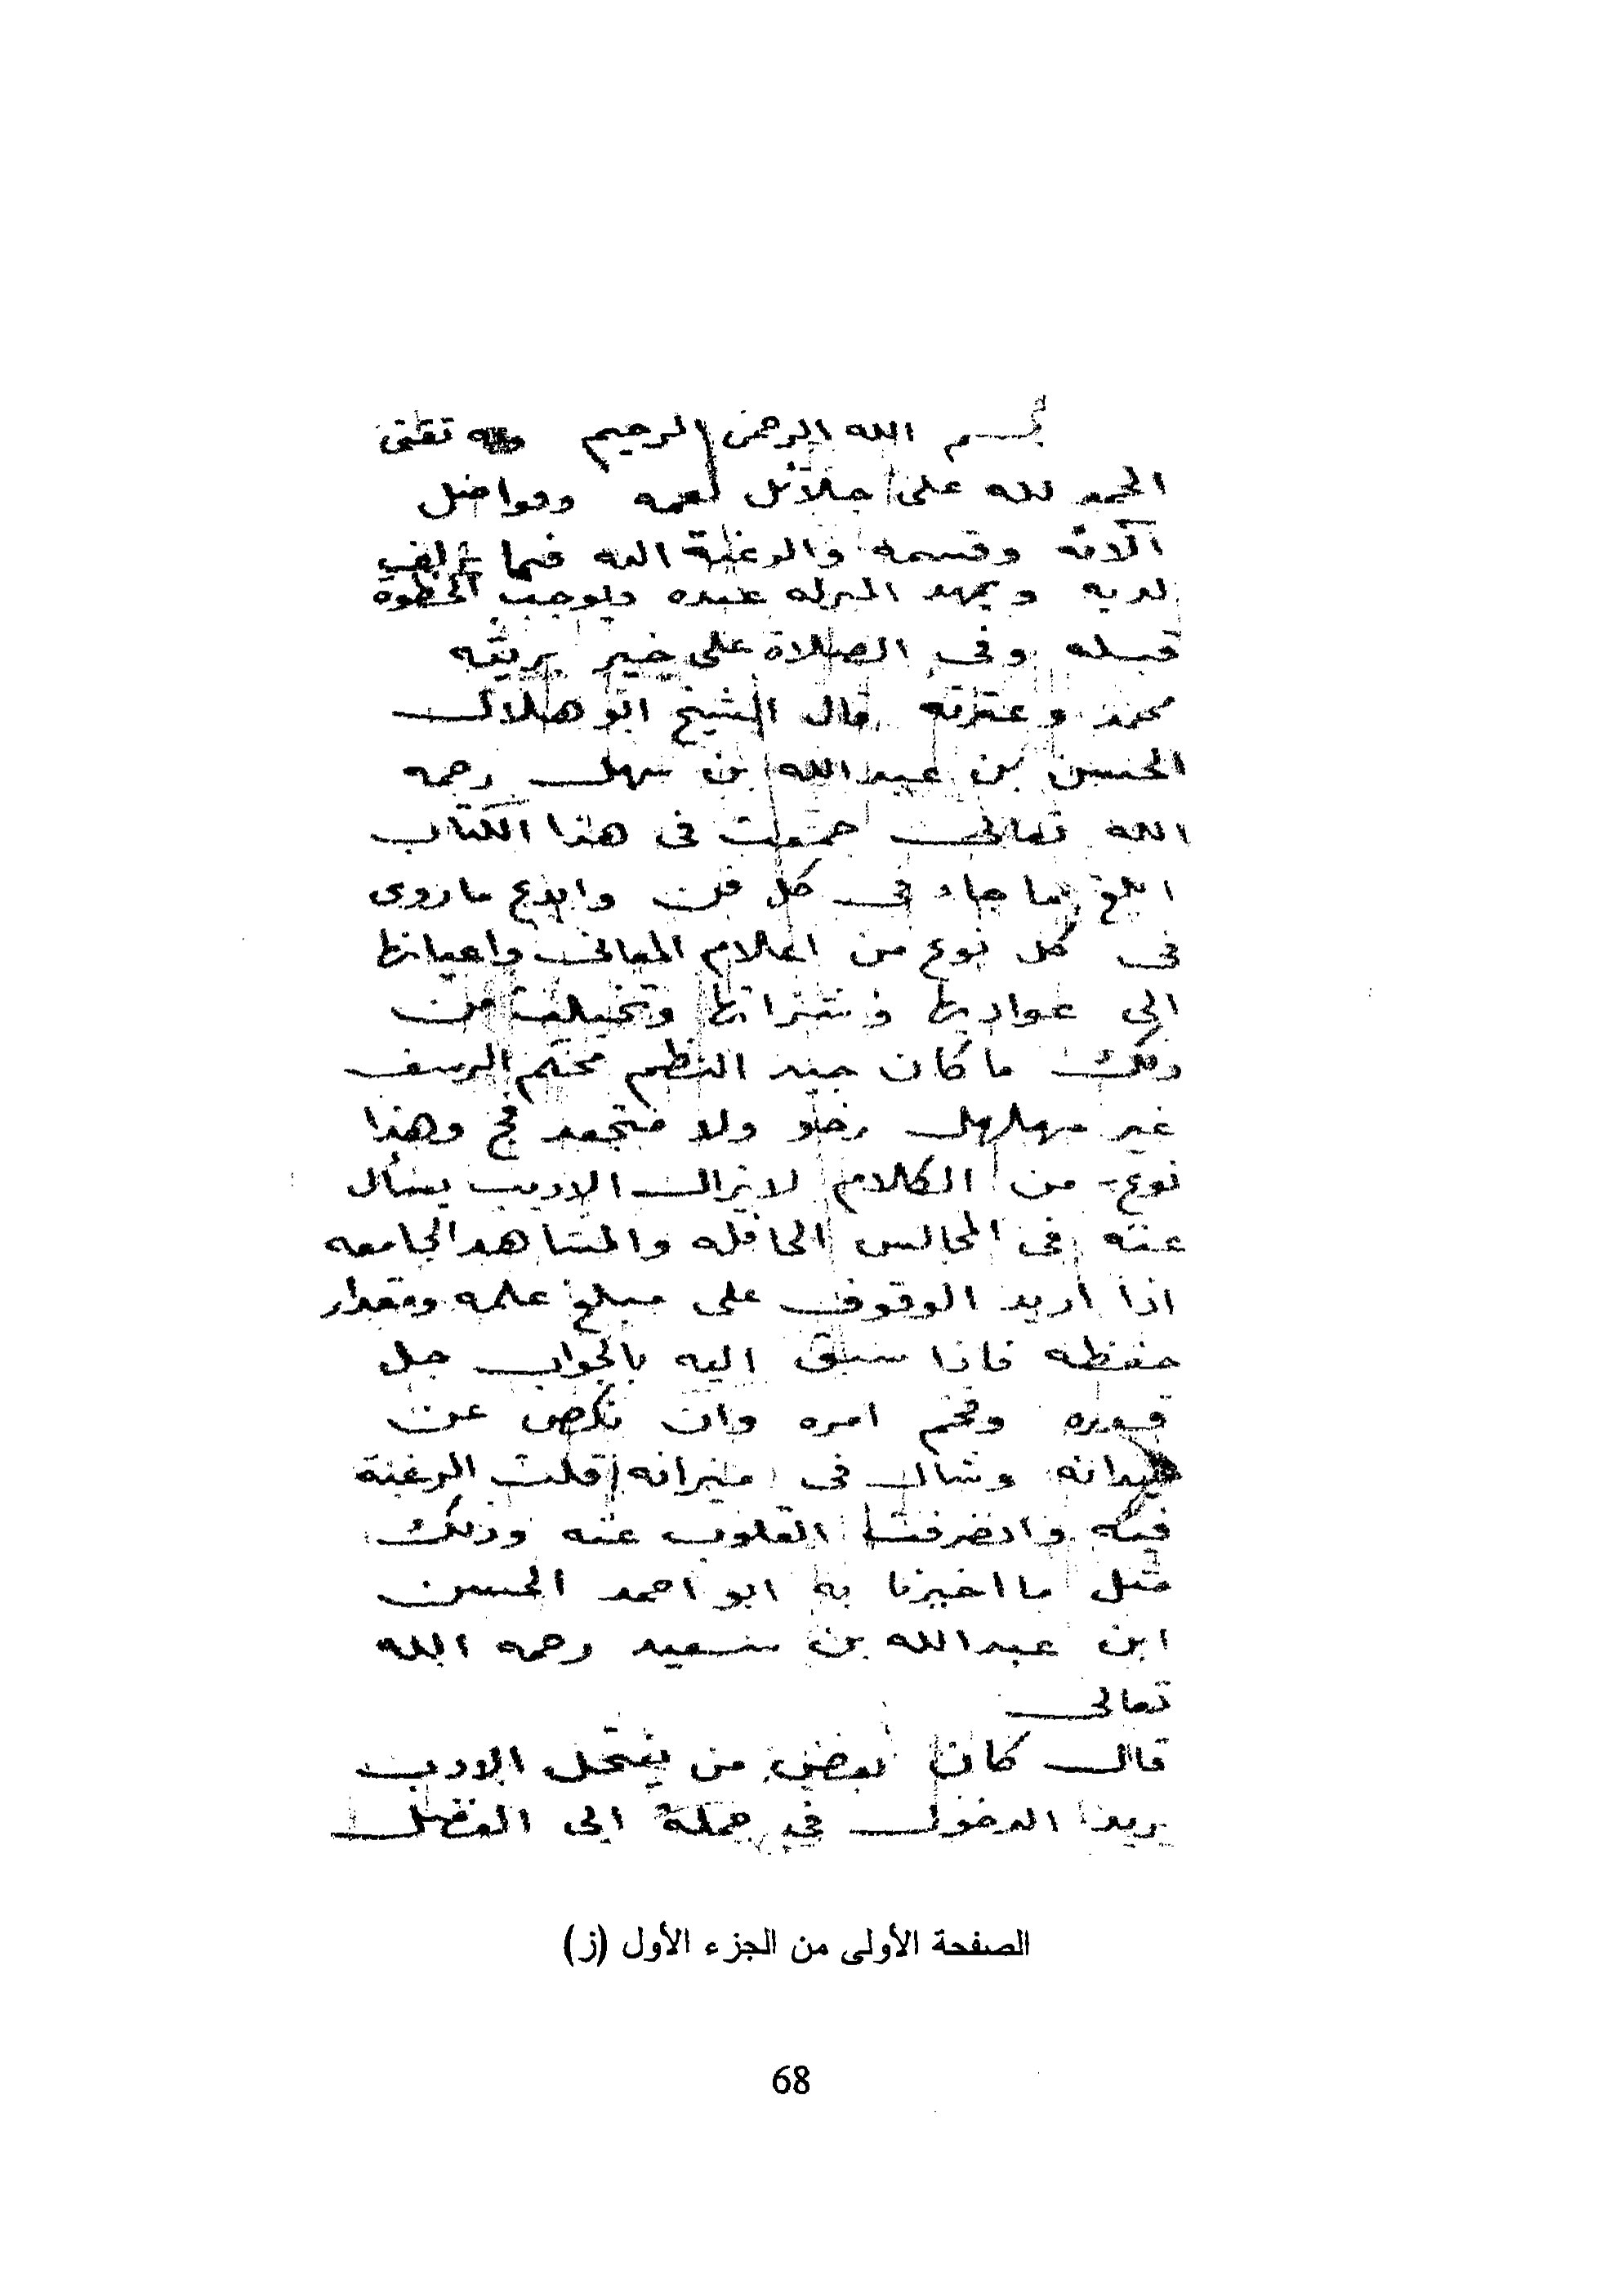 بسم الله الرحمن الرحيم وبه ثقتى
الحمد لله على جلائل نعمه وفواضل
آلائه وقسمه والرغبة اليه فيما يزلف
لديه ويمهد المنزله عنده ويوجب الحظوة
قبله وفى الصلاة على خير بريته
محمد وعترته قال الشيخ ابو هلال
الحسن بن عبد الله بن سهل رحمه
الله تعالى جمعت فى هذا الكتاب
ابلغ ما جاء فى كل فن وابدع ما روى
فى كل نوع من اعلام المعانى واعيانها
الى عواديها وشذاتها وتخيلت من
ذلك ما كان جيد النظم محكم الرصف
غير مهلهل رخو ولا متجعد فج وهذا
نوع من الكلام لا يزال الاديب يسأل
عنه فى المجالس الحافله والمشاهد الجامعه
اذا اريد الوقوف على مبلغ علمه ومقدار
حفظه فاذا سبق اليه بالجواب جل
قدره وفخم امره وان نكص عن
ميدانه وشال فى ميزانه قلت الرغبة
فيه وانصرفت القلوب عنه وذلك
مثل ما اخبرنا به ابو احمد الحسن
ابن عبد الله بن سعيد رحمه الله
تعالى
قال كان بعض من ينتحل الادب
يريد الدخول فى جملة ابى الفضل
الصفحة الأولى من الجزء الأول (ز)
68